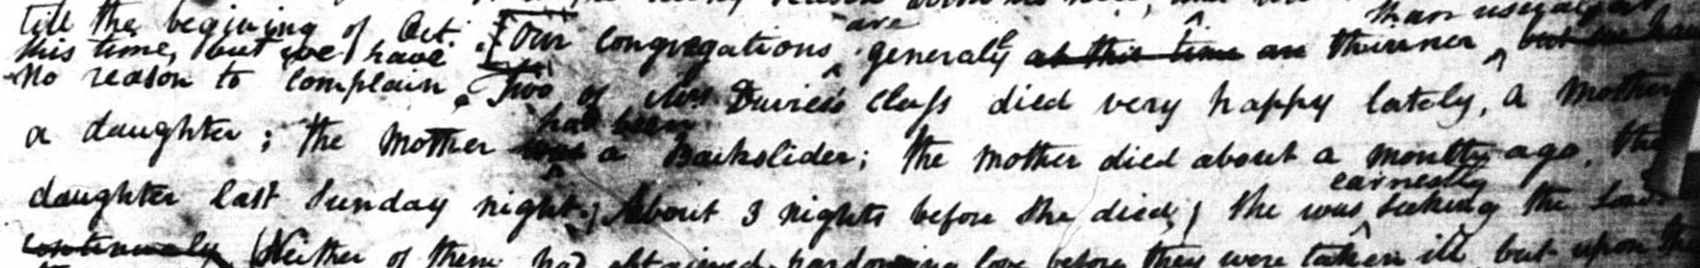 till the begining of Oct. [Our congregations are generaly at this time are thinner than usual
this time, but we have
no reason to complain. Two of Mrs Davies's Class died very happy lately, a Mother
a daughter; the Mother had been was a Backslider; the Mother died about a month ago. the
daughter last Sunday night; About 3 nights before she died, she was earnestly seeking the
continualy (Neither of them had obtained pardoning love before they were taken ill but upon the